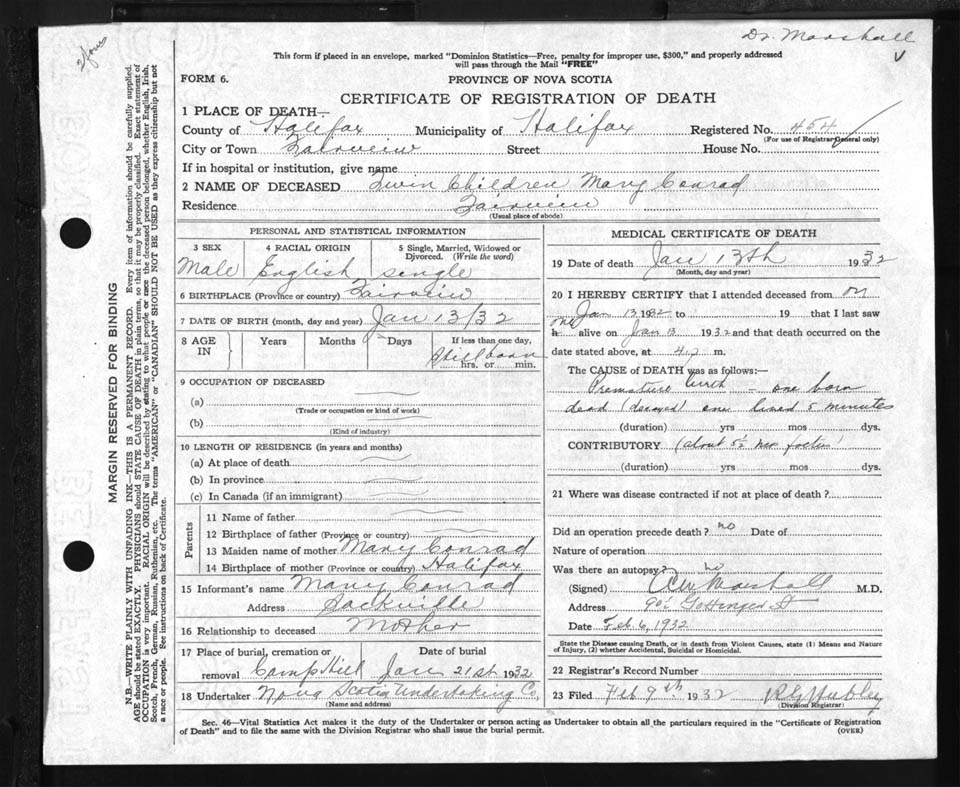 Dr. Marshall
This form if placed in an envelope, marked "Dominion Statistics—Free, penalty for improper use, $300," and properly addressed
will pass through the Mail "FREE"
FORM 6.
PROVINCE OF NOVA SCOTIA
CERTIFICATE OF REGISTRATION OF DEATH
1 PLACE OF DEATH—
County of Halifax Municipality of Halifax Registered No. 454
(For use of Registrar General only)
City or Town Fairveiw Street House No.
If in hospital or institution, give name
2 NAME OF DECEASED Twin Children Mary Conrad
Residence Fairveiw
(Usual place of abode)
PERSONAL AND STATISTICAL INFORMATION
3 SEX 4 RACIAL ORIGIN 5 Single, Married, Widowed or Divorced. (Write the word)
Male English single
6 BIRTHPLACE (Province or country) Fairveiw
7 DATE OF BIRTH (month, day and year) Jan 13/32
8 AGE IN Years Months Days If less than one day,
Stillborn
hrs. or min.
9 OCCUPATION OF DECEASED
(a)
(Trade or occupation or kind of work)
(b)
(Kind of industry)
10 LENGTH OF RESIDENCE (in years and months)
(a) At place of death
(b) In province
(c) In Canada (if an immigrant)
Parents
11 Name of father
12 Birthplace of father (Province or country)
13 Maiden name of mother Mary Conrad
14 Birthplace of mother (Province or country) Halifax
15 Informant's name Mary Conrad
Address Sackville
16 Relationship to deceased Mother
17 Place of burial, cremation or removal Date of burial
Camp Hill Jan 21st 1932
18 Undertaker Nova Scotia Undertaking Co.
(Name and address)
MEDICAL CERTIFICATE OF DEATH
19 Date of death Jan 13th 1932
(Month, day and year)
20 I HEREBY CERTIFY that I attended deceased from on
Jan 13 1932 to 19 that I last saw
h one alive on Jan 13 1932 and that death occurred on
date stated above, at m.
The CAUSE of DEATH was as follows:—
Premature birth – one born
dead (decayed) one lived 5 minutes
(duration) yrs mos dys.
CONTRIBUTORY (about 5½ mos foetus)
(duration) yrs mos dys.
21 Where was disease contracted if not at place of death?
Did an operation precede death? no Date of
Nature of operation
Was there an autopsy? no
(Signed) Marshall M.D.
Address Gottingen St
Date Feb 6, 1932
State the Disease causing Death, or in death from Violent Causes, state (1) Means and Nature
of Injury, (2) whether Accidental, Suicidal or Homicidal.
22 Registrar's Record Number
23 Filed Feb 9th 1932 R G Hubley
(Division Registrar)
Sec. 46—Vital Statistics Act makes it the duty of the Undertaker or person acting as Undertaker to obtain all the particulars required in the "Certificate of Registration
of Death" and to file the same with the Division Registrar who shall issue the burial permit.
(OVER)
MARGIN RESERVED FOR BINDING
N.B.—WRITE PLAINLY WITH UNFADING INK—THIS IS A PERMANENT RECORD. Every item of information should be carefully supplied.
AGE should be stated EXACTLY. PHYSICIANS should STATE CAUSE OF DEATH in plain terms, so that it may be properly classified. Exact statement of
OCCUPATION is very important. RACIAL ORIGIN will be described by stating to what people or race the deceased person belonged, whether English, Irish,
Scotch, French, German, Russian, Ruthenian, etc. The terms "AMERICAN" or "CANADIAN" SHOULD NOT BE USED as they express citizenship but not
a race or people. See instructions on back of Certificate.